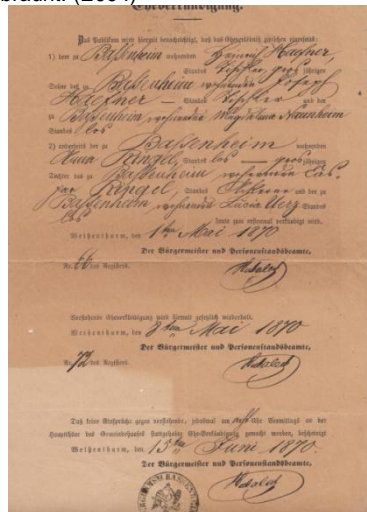 (2004)
Eheverkündigung.
Das Publikum wird hiermit benachrichtigt, daß das Eheverlöbniß zwischen einerseits:
1) dem zu Bassenheim wohnenden Heinrich Haefner,
Standes Tischler, groß jährigen
Sohne des zu Bassenheim wohnenden Joseph
Haefner — Standes Tischler und der
zu Bassenheim wohnenden Magdalena Naunheim
Standes los
2) anderseits der zu Bassenheim wohnenden
Anna Ringel, Standes los — großjährigen
Tochter des zu Bassenheim wohnenden Cas-
par Ringel, Standes Ackerer und der zu
Bassenheim wohnenden Lucia Uerz Standes
los
heute zum erstenmal verkündigt wird.
Weißenthurm, den 1ten Mai 1870
Der Bürgermeister und Personenstandsbeamte,
Nr. 66 des Registers.
Vorstehende Eheverkündigung wird hiermit gesetzlich wiederholt.
Weißenthurm, den 8ten Mai 1870
Der Bürgermeister und Personenstandsbeamte,
Nr. 72 des Registers.
Daß keine Einsprüche gegen vorstehende, jedesmal um Uhr Vormittags an der
Hauptthüre des Gemeindehauses stattgehabte Ehe-Verkündigung gemacht worden, bescheinigt
Weißenthurm, den 15ten Juni 1870.
Der Bürgermeister und Personenstandsbeamte,